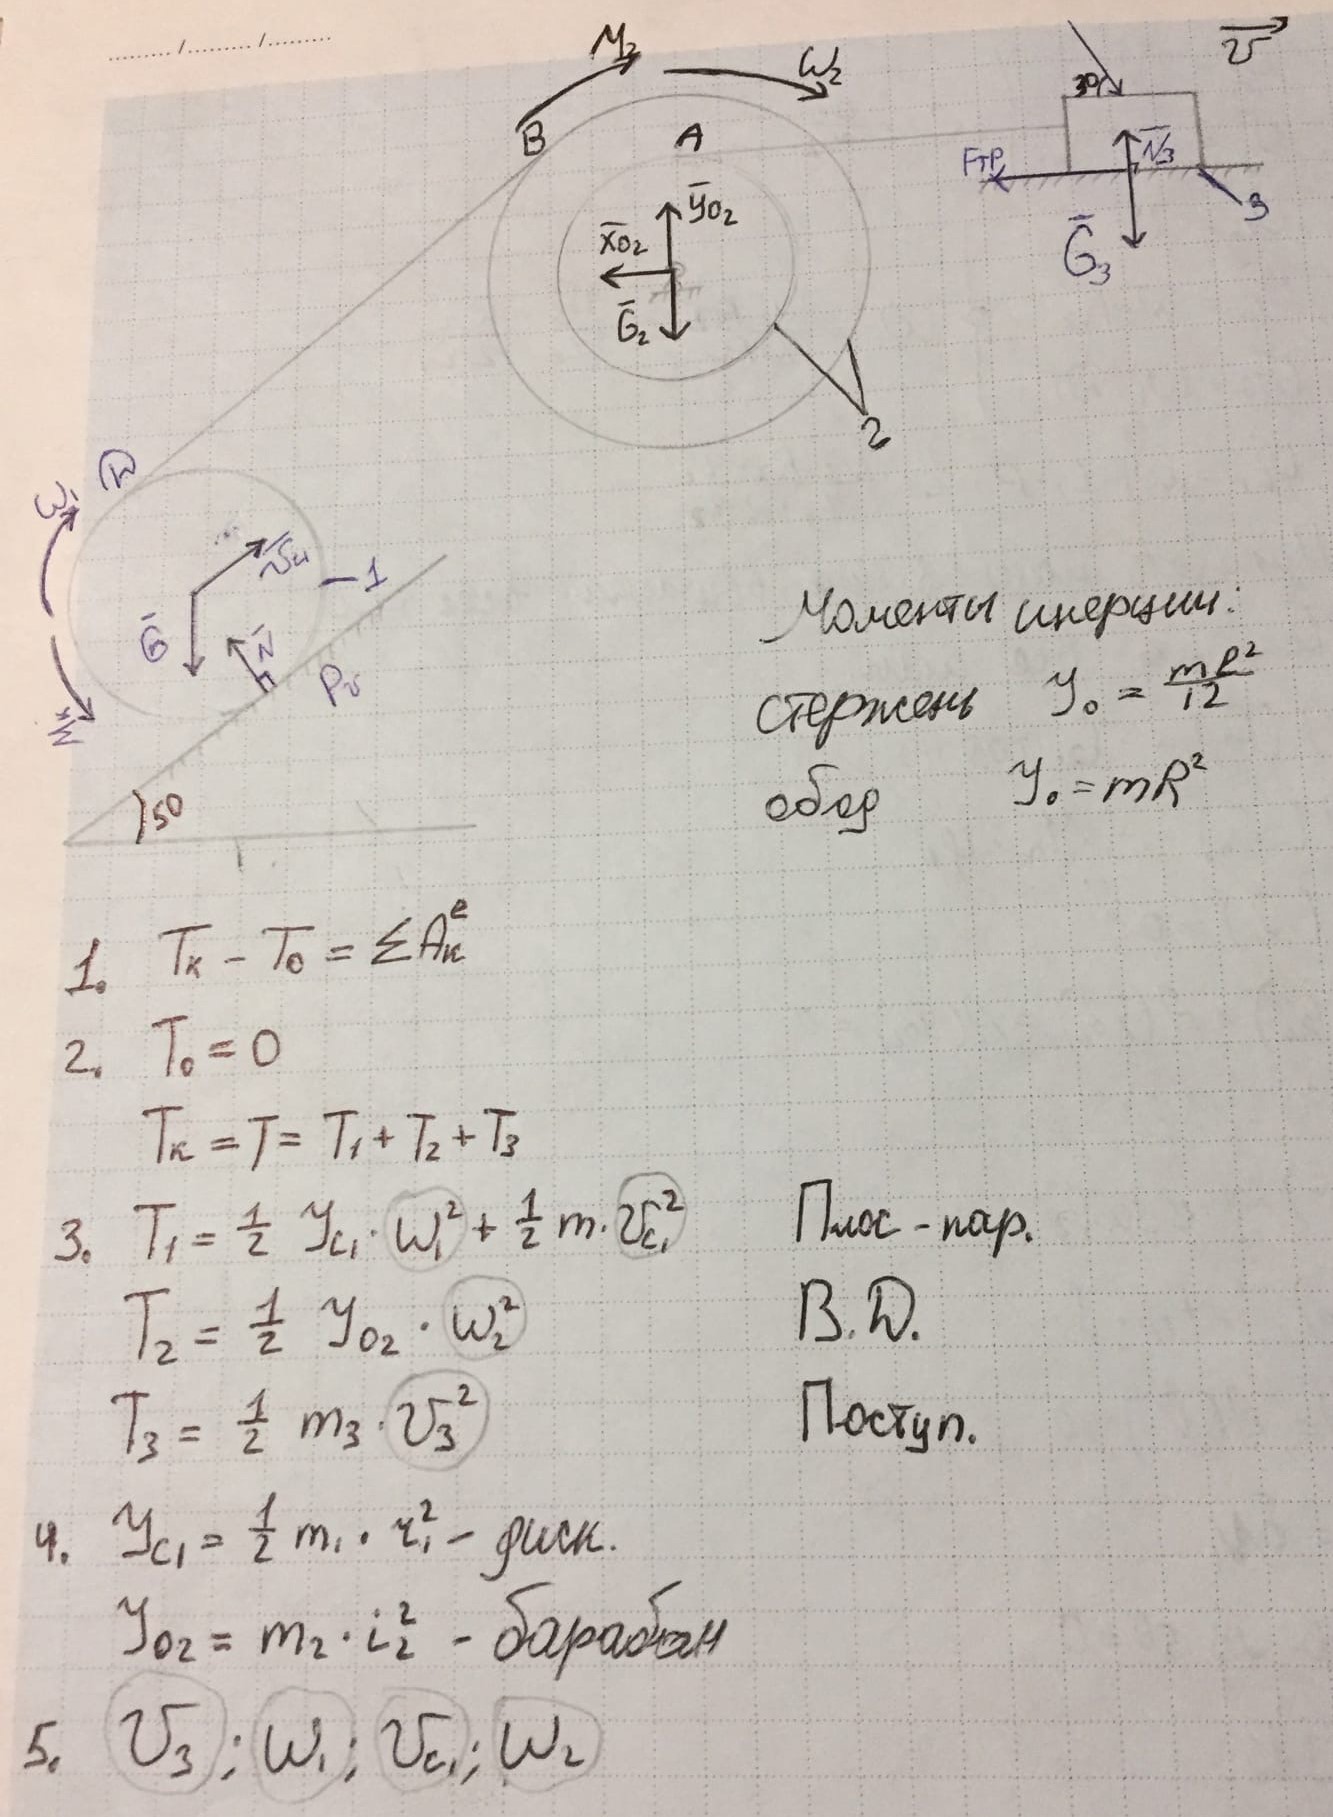 M₂
ω₂
v̄
B
A
30
Fтр
N̄₃
3
Ḡ₃
ȳo₂
x̄o₂
Ḡ₂
2
D
ω₁
v̄c₁
1
Ḡ
N̄
Pv
50
Моменты инерции:
стержень Y₀ = mR²/12
обод Y₀ = mR²
1. Tк - T₀ = ΣAкᵉ
2. T₀ = 0
Tк = T = T₁ + T₂ + T₃
3. T₁ = 1/2 Yc₁ · ω₁² + 1/2 m · vc₁² Плос - пар.
T₂ = 1/2 Yo₂ · ω₂² В.Д.
T₃ = 1/2 m₃ · v₃² Поступ.
4. Yc₁ = 1/2 m₁ · r₁² - диск.
Yo₂ = m₂ · i₂² - барабан
5. v₃; ω₁; vc₁; ω₂